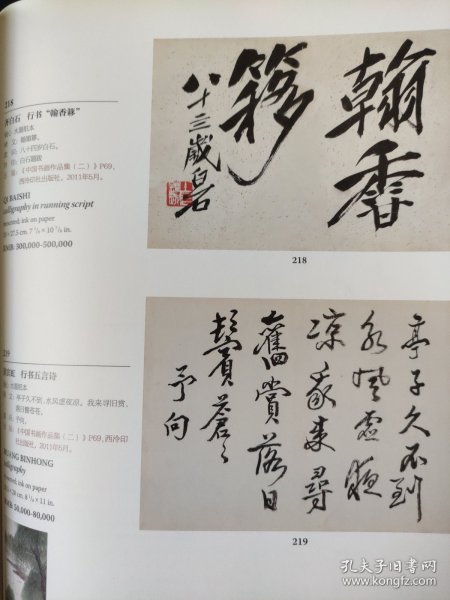 218
齐白石 行书“翰香簃”
水墨纸本
八十四岁白石。
白石题跋
《中国书画作品集（二）》P69，
西泠印社出版社，2011年5月。
QI BAISHI
Calligraphy in running script
mounted; ink on paper
27.5 cm 7 ⅞ × 10 ⅞ in.
RMB: 300,000-500,000
翰香
簃
八十三歲白石
218
239
行书五言诗
水墨纸本
亭子久不到，水风虚夜凉。我来寻旧赏，
落日鬓苍苍。
予向。
《中国书画作品集（二）》P69，西泠印
社出版社，2011年5月。
HUANG BINHONG
Calligraphy
mounted; ink on paper
28 cm 8 ⅛ × 11 in.
RMB: 50,000-80,000
亭子久不到
水風虛夜
涼我來尋
舊賞落日
鬢蒼〻
予向
219
孔夫子旧书网
www.kongfz.com